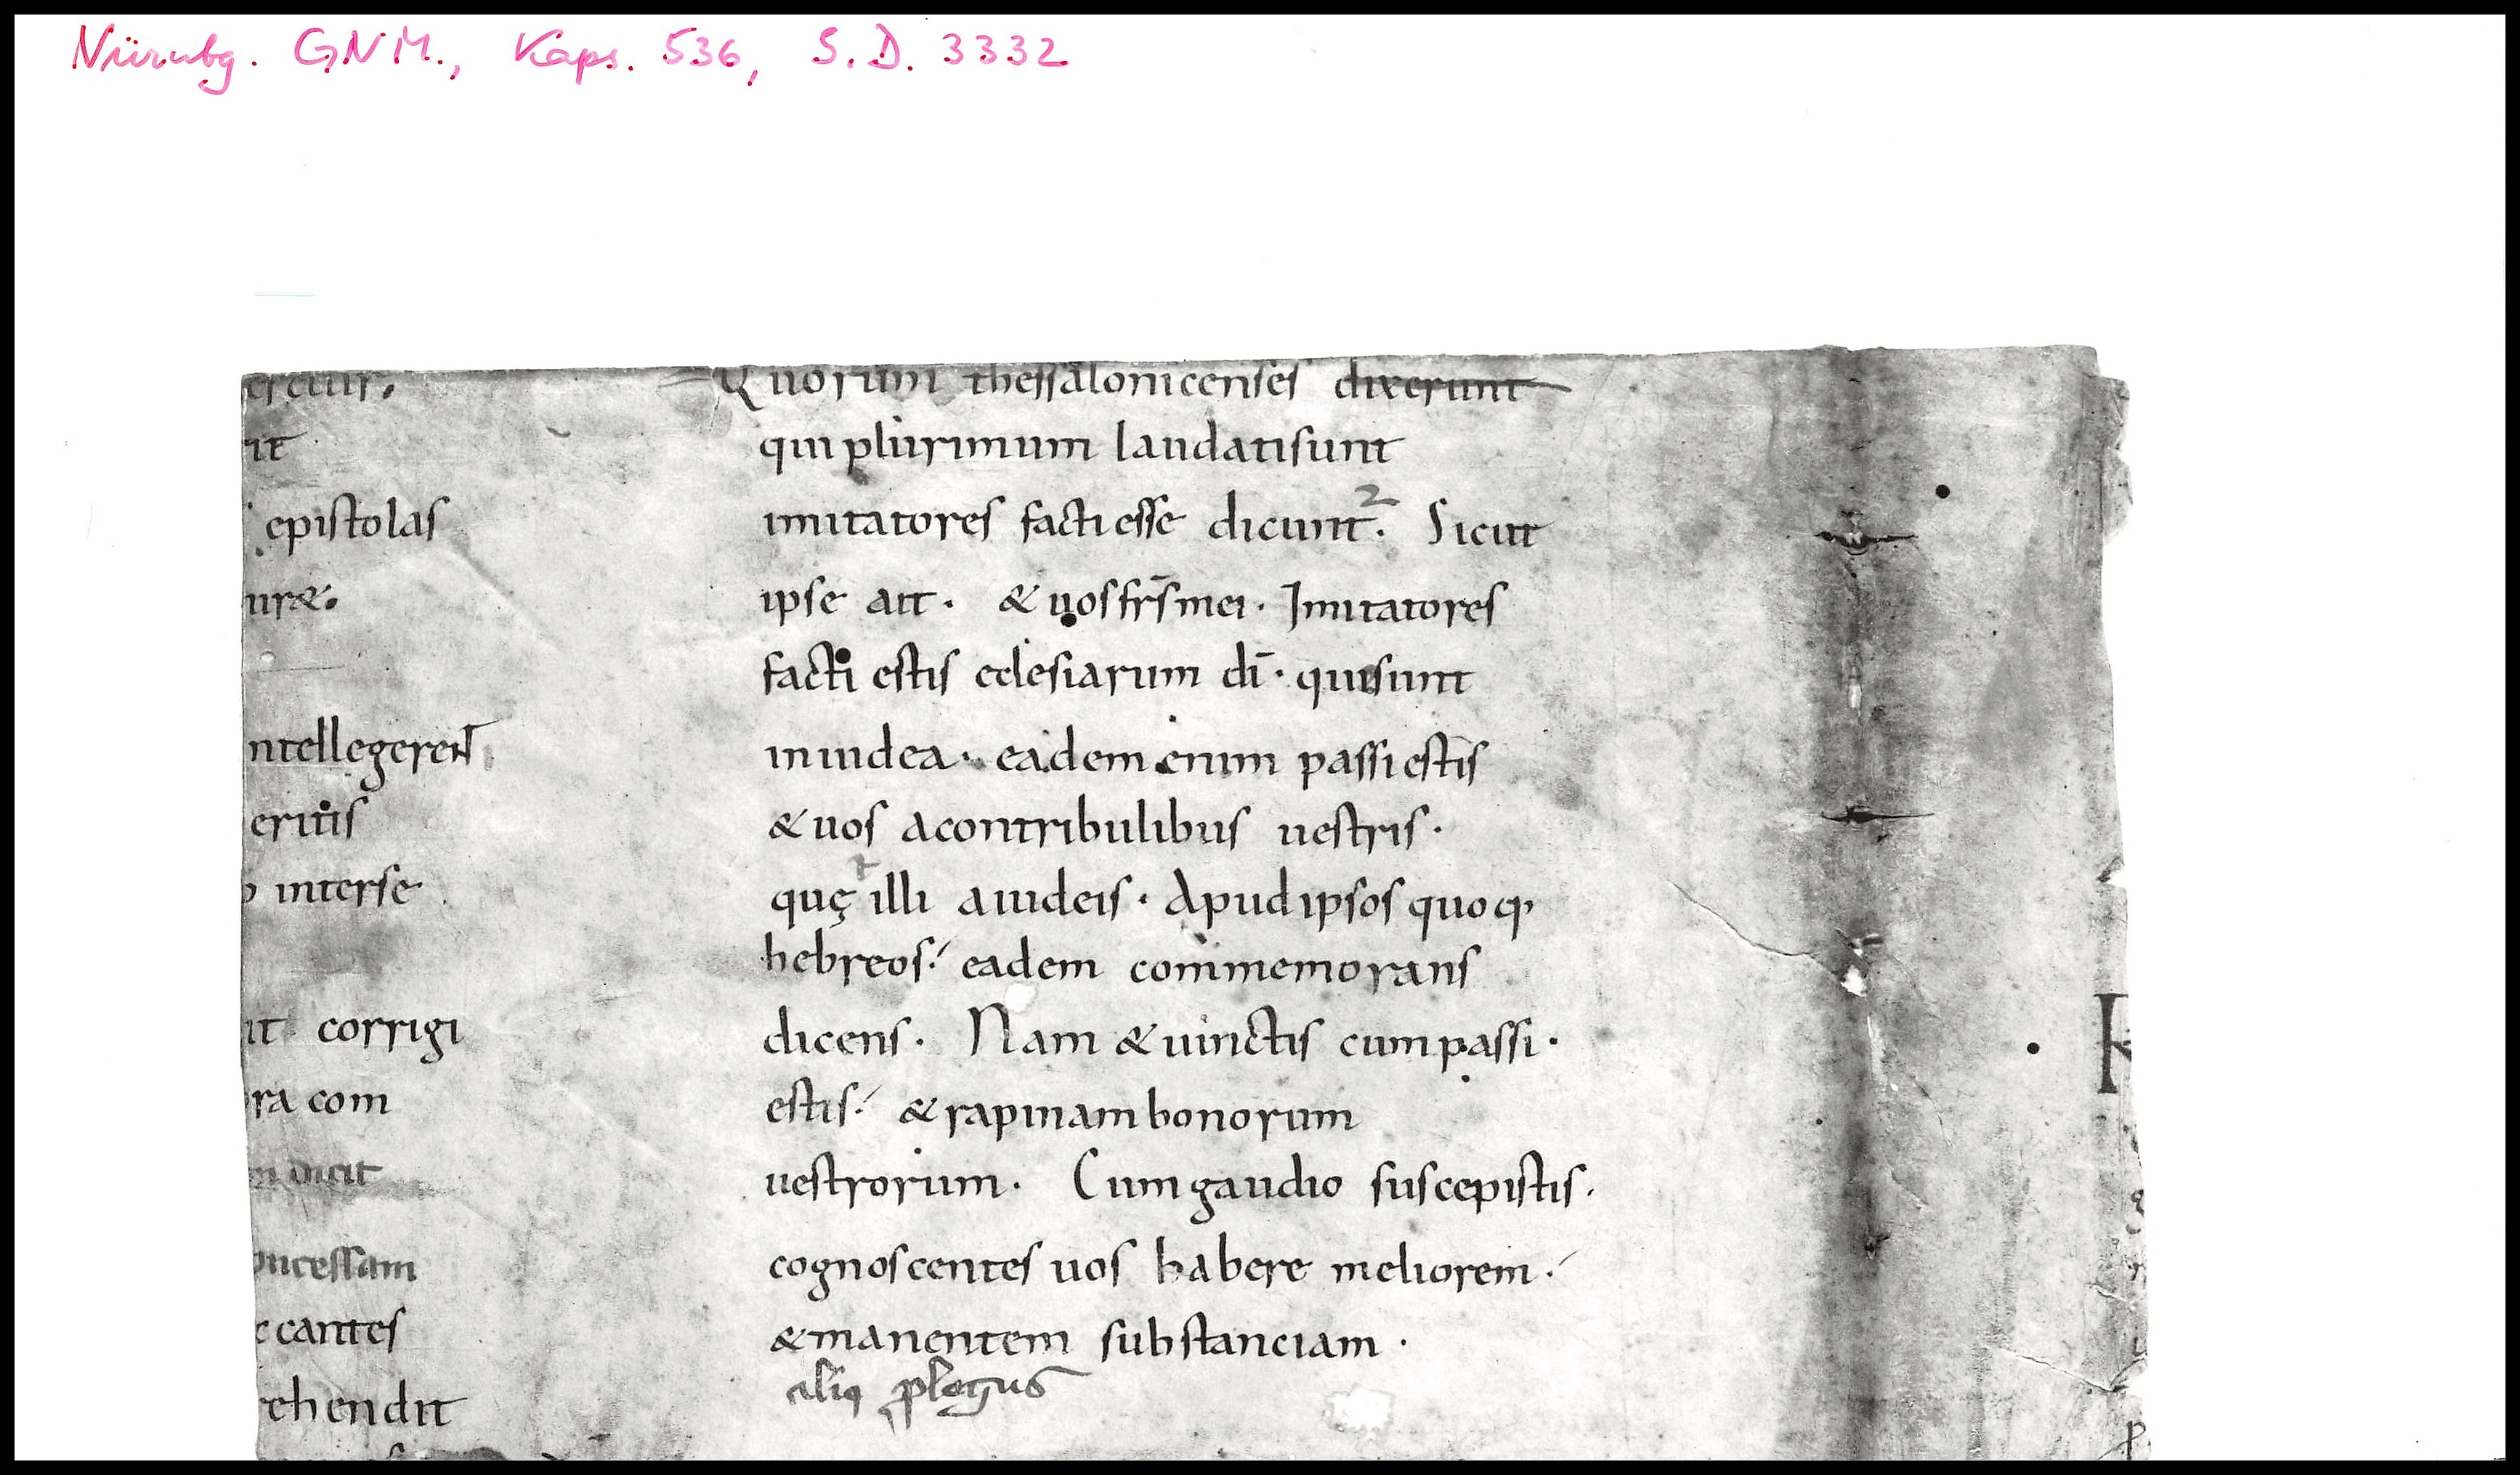 Nürnbg. GNM., Kaps. 536, S.D. 3332
it
epistolas
uræ.
ntellegerent
eritis
interse
it corrigi
ra com
dicit
oncessam
cantes
rehendit
Quorum thessalonicenses dixerunt
qui plurimum laudatisunt
imitatores facti esse dicunt. Sicut
ipse ait. & uos frs̄ mei. Imitatores
facti estis eclesiarum dī. quisunt
iniudea. eadem enim passi estis
& uos acontribulibus uestris.
quę illi aiudeis. Apud ipsos quoq,
hebreos. eadem commemorans
dicens. Nam & uinctis cumpassi.
estis. & rapinam bonorum
uestrorum. Cum gaudio suscepistis.
cognoscentes uos habere meliorem.
& manentem substanciam.
pologus